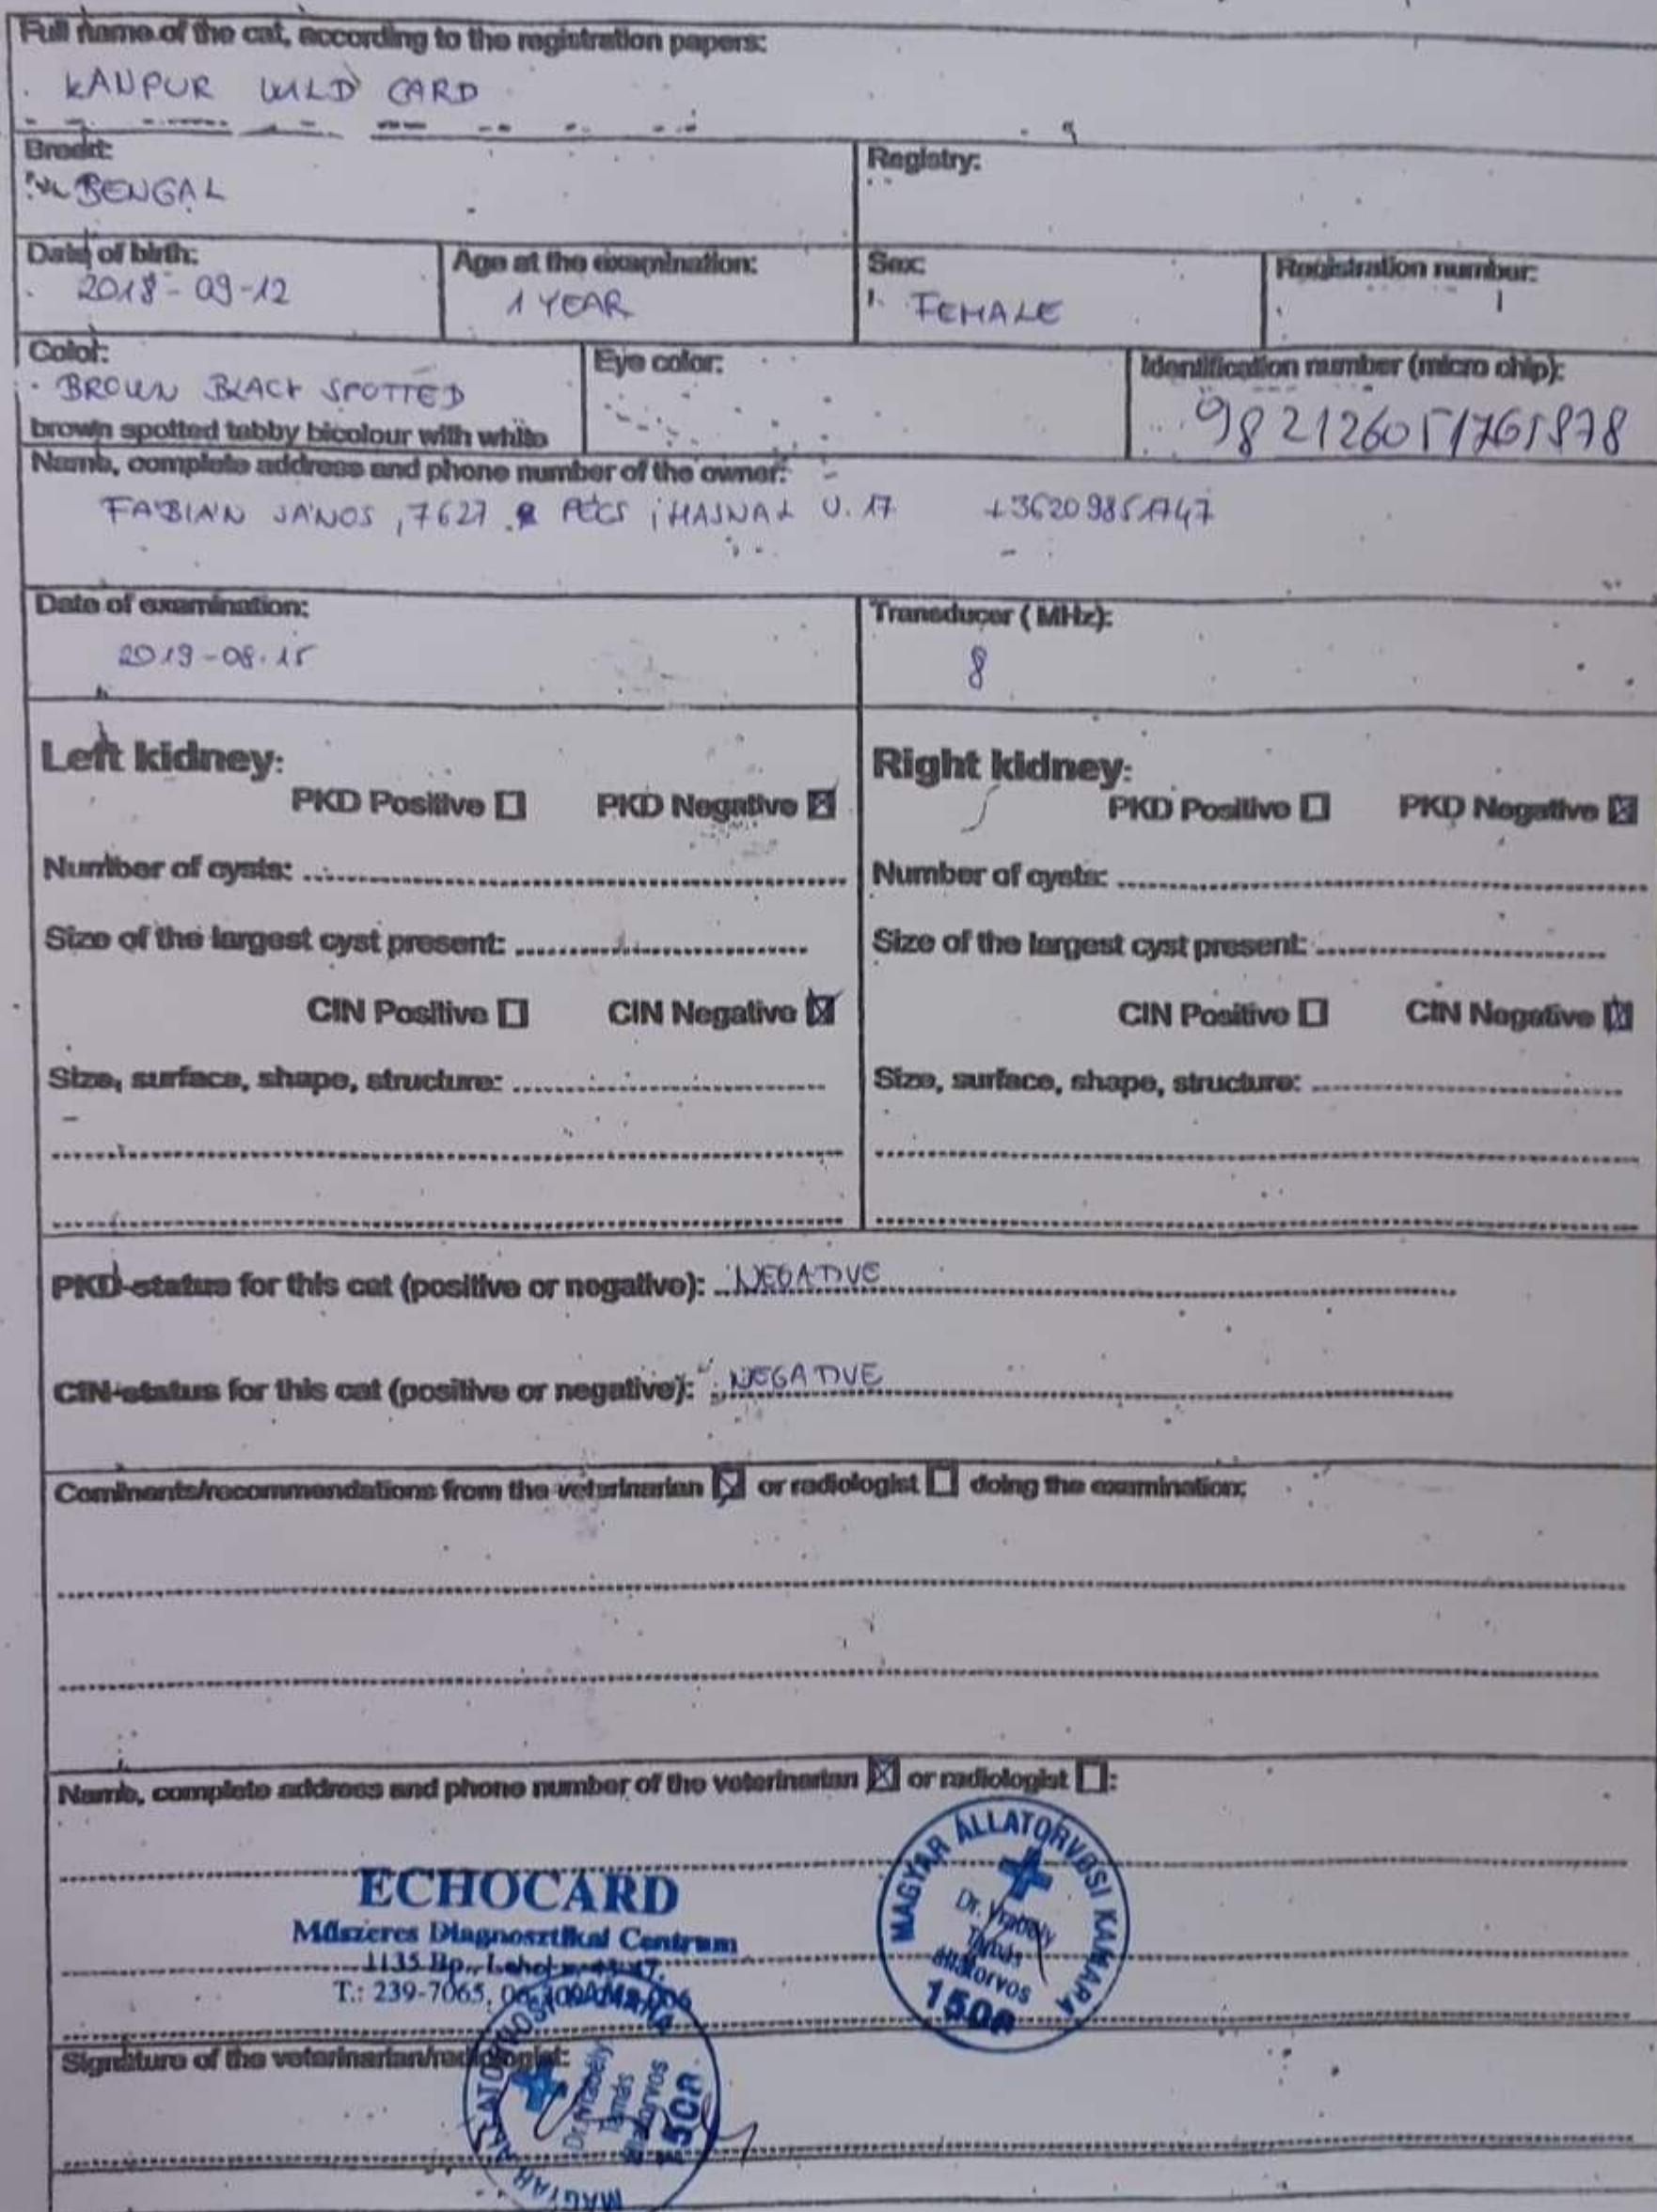 Full name of the cat, according to the registration papers:
KANPUR WILD CARD
Breed:
BENGAL
Registry:
Date of birth:
2018-09-12
Age at the examination:
1 YEAR
Sex:
FEMALE
Registration number:
Color:
BROWN BLACK SPOTTED
brown spotted tabby bicolour with white
Eye color:
Identification number (micro chip):
Name, complete address and phone number of the owner:
FÁBIÁN JÁNOS, 7627 PÉCS, HAJNAL U. 17
Date of examination:
2019-08.15
Transducer (MHz):
8
Left kidney:
PKD Positive ☐ PKD Negative ☒
Number of cysts:
Size of the largest cyst present:
CIN Positive ☐ CIN Negative ☒
Size, surface, shape, structure:
Right kidney:
PKD Positive ☐ PKD Negative ☒
Number of cysts:
Size of the largest cyst present:
CIN Positive ☐ CIN Negative ☒
Size, surface, shape, structure:
PKD-status for this cat (positive or negative): NEGATIVE
CIN-status for this cat (positive or negative): NEGATIVE
Comments/recommendations from the veterinarian ☒ or radiologist ☐ doing the examination:
Name, complete address and phone number of the veterinarian ☒ or radiologist ☐:
ECHOCARD
Műszeres Diagnosztikai Centrum
1135 Bp., Lehel
T.: 239-7065,
MAGYAR ÁLLATORVOSI KAMARA
Dr. Vrabély
Tamás
állatorvos
Signature of the veterinarian/radiologist:
MAGYAR ÁLLATORVOSI KAMARA
Dr. Vrabély
Tamás
állatorvos